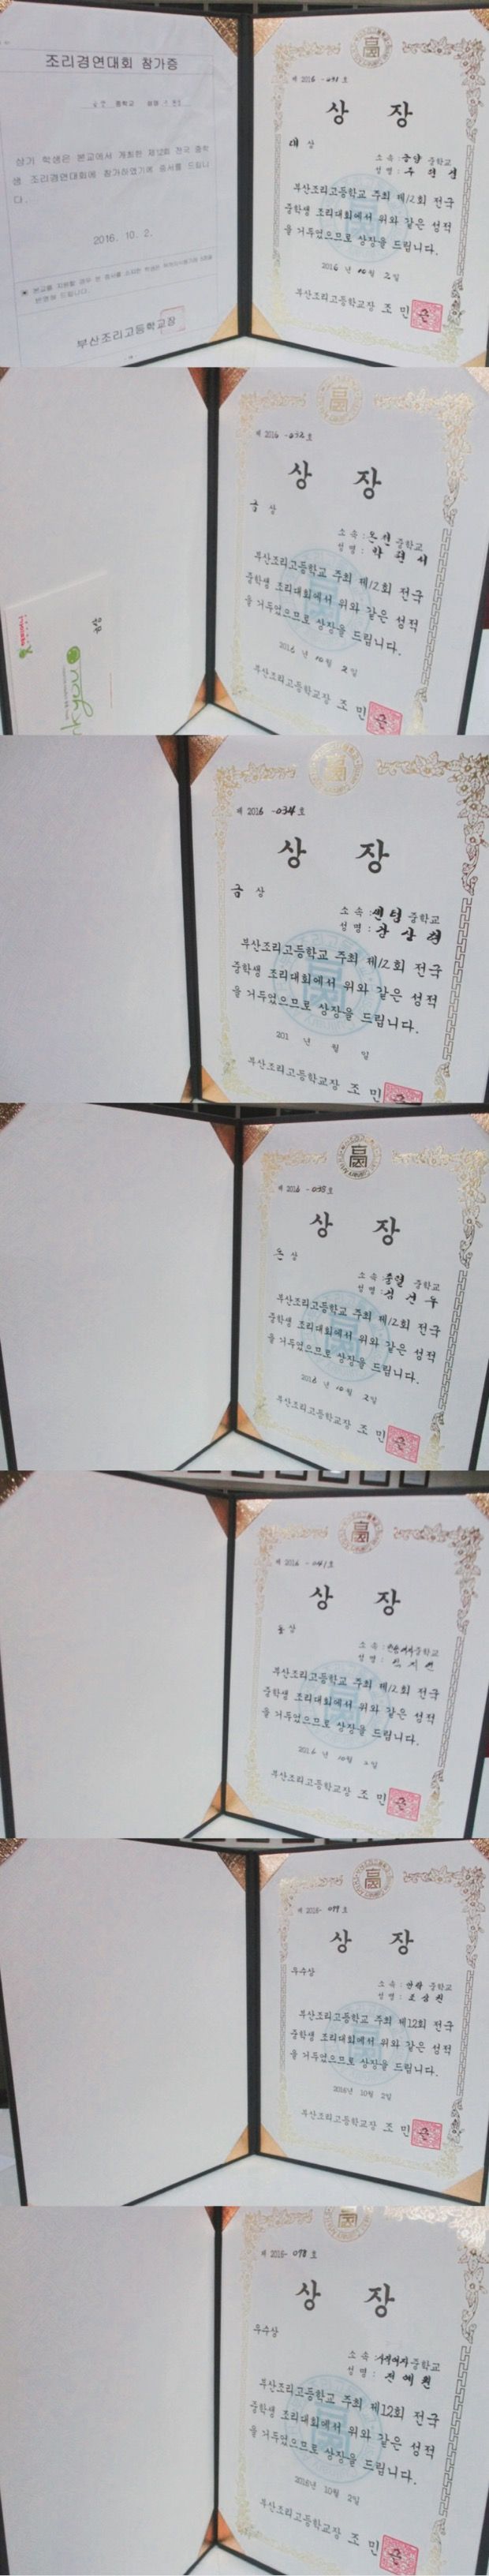 조리경연대회 참가증
중학교
상기 학생은 본교에서 개최한 제12회 전국 중학
생 조리경연대회에 참가하였기에 증서를 드립니
다.
2016. 10. 2.
부산조리고등학교장
제 2016 - 031 호
상 장
대 상
소 속 : 중학교
성 명 :
부산조리고등학교 주최 제12회 전국
중학생 조리대회에서 위와 같은 성적
을 거두었으므로 상장을 드립니다.
2016 년 10 월 2 일
부산조리고등학교장 조 민
제 2016 - 032 호
상 장
금 상
소 속 : 중학교
성 명 :
부산조리고등학교 주최 제12회 전국
중학생 조리대회에서 위와 같은 성적
을 거두었으므로 상장을 드립니다.
2016 년 10 월 2 일
부산조리고등학교장 조 민
제 2016 - 034 호
상 장
금 상
소 속 : 센텀 중학교
성 명 : 강 상
부산조리고등학교 주최 제12회 전국
중학생 조리대회에서 위와 같은 성적
을 거두었으므로 상장을 드립니다.
201 년 월 일
부산조리고등학교장 조 민
제 2016 - 035 호
상 장
은 상
소 속 : 충렬 중학교
성 명 : 김 선 우
부산조리고등학교 주최 제12회 전국
중학생 조리대회에서 위와 같은 성적
을 거두었으므로 상장을 드립니다.
2016 년 10 월 2 일
부산조리고등학교장 조 민
제 2016 - 041 호
상 장
동 상
소 속 : 중학교
성 명 :
부산조리고등학교 주최 제12회 전국
중학생 조리대회에서 위와 같은 성적
을 거두었으므로 상장을 드립니다.
2016 년 10 월 2 일
부산조리고등학교장 조 민
제 2016- 호
상 장
우수상
소 속 : 중학교
성 명 :
부산조리고등학교 주최 제12회 전국
중학생 조리대회에서 위와 같은 성적
을 거두었으므로 상장을 드립니다.
2016년 10월 2일
부산조리고등학교장 조 민
제 2016- 078 호
상 장
우수상
소 속 : 중학교
성 명 : 전 예 원
부산조리고등학교 주최 제12회 전국
중학생 조리대회에서 위와 같은 성적
을 거두었으므로 상장을 드립니다.
2016년 10월 2일
부산조리고등학교장 조 민